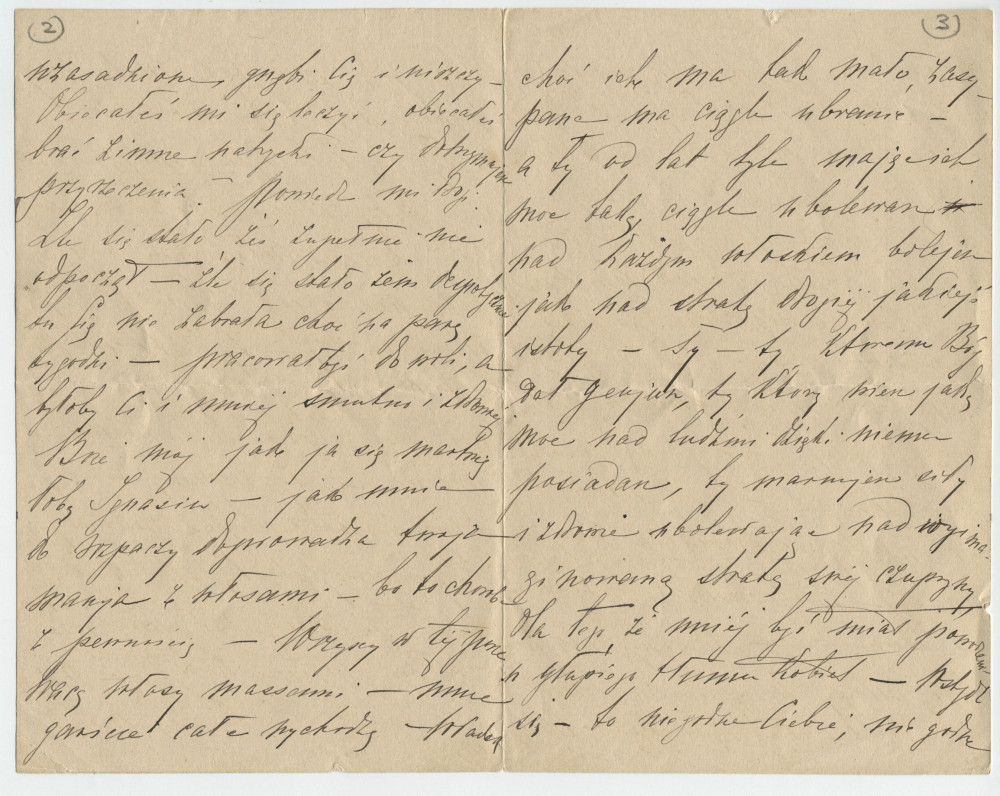 (2)
wzasadnione, gnębi Cię i niszczy –
Obiecałeś mi się leczyć, obiecałeś
brać zimne natryski – czy dotrzymujesz
przyrzeczenia – Powiedz mi
Źle się stało żeś zupełnie nie
odpoczął – źle się stało żem despotycznie
tu Cię nie zabrała choć na parę
tygodni – pracowałbyś do woli, a
byłoby Ci i mniéj smutno i zdrowiéj
Boże mój jak ja się martwię
tobą Ignasiu – jak mnie
do rozpaczy doprowadza twoja
manija z włosami – bo to choroba
z pewnością – Wszyscy w téj porze
tracą włosy massami – mnie
garście całe wychodzą – Władek
(3)
choć ich ma tak mało, zasy-
pane ma ciągle ubranie –
a ty od lat tyle mając ich
moc taką, ciągle ubolewasz
nad każdym włoskiem bolejesz
jak nad stratą drogiéj jakiejś
istoty – Ty – ty któremu Bóg
dał genjusz, ty który wiesz jaką
moc nad ludźmi dzięki niemu
posiadasz, ty marnujesz siły
i zdrowie ubolewając nad wyima-
ginowaną stratą swéj czupryny
dla tego że mniéj być miał powodzenia
u głupiego tłumu kobiet – Wstydź
się – to niegodne Ciebie, niegodne